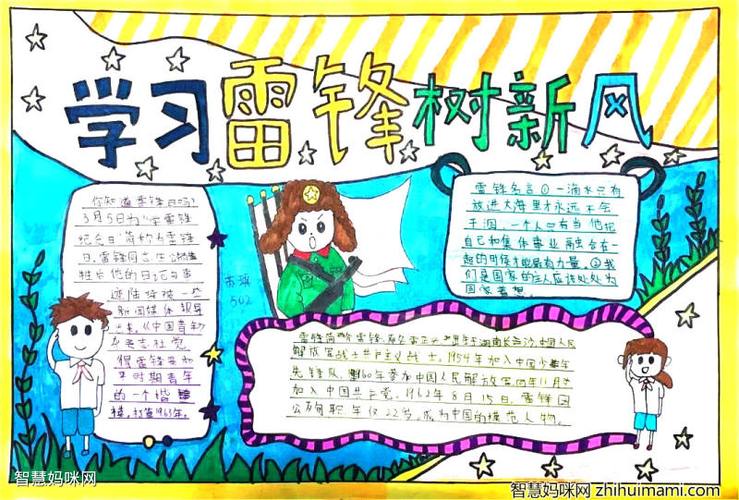 学习雷锋树新风
你知道雷锋日吗?
3月5日为"学雷锋
纪念日"简称为雷锋
日,雷锋同志生
牲后他的日记与事
迹陆续被一些
新闻媒体报导
出来,《中国青年
使雷锋
时期青年
的一个楷
模,
1963年。
市球
502
雷锋名言①一滴水只有
放进大海里才永远不会
干涸,一个人只有当他把
自己和集体事业融合在一
起的时候才能最有力量。②我
们是国家的主人应该处处为
国家着想。
雷锋简介 雷锋,原名雷正兴 湖南长沙,中国人民
解放军战士共产主义战士,1954年加入中国少年
先锋队,1960年参加中国人民解放军同年11月
加入中国共产党。1962年8月15日,雷锋因
公殉职年仅22岁,成为中国的模范人物。
智慧妈咪网
智慧妈咪网 zhihuimami.com